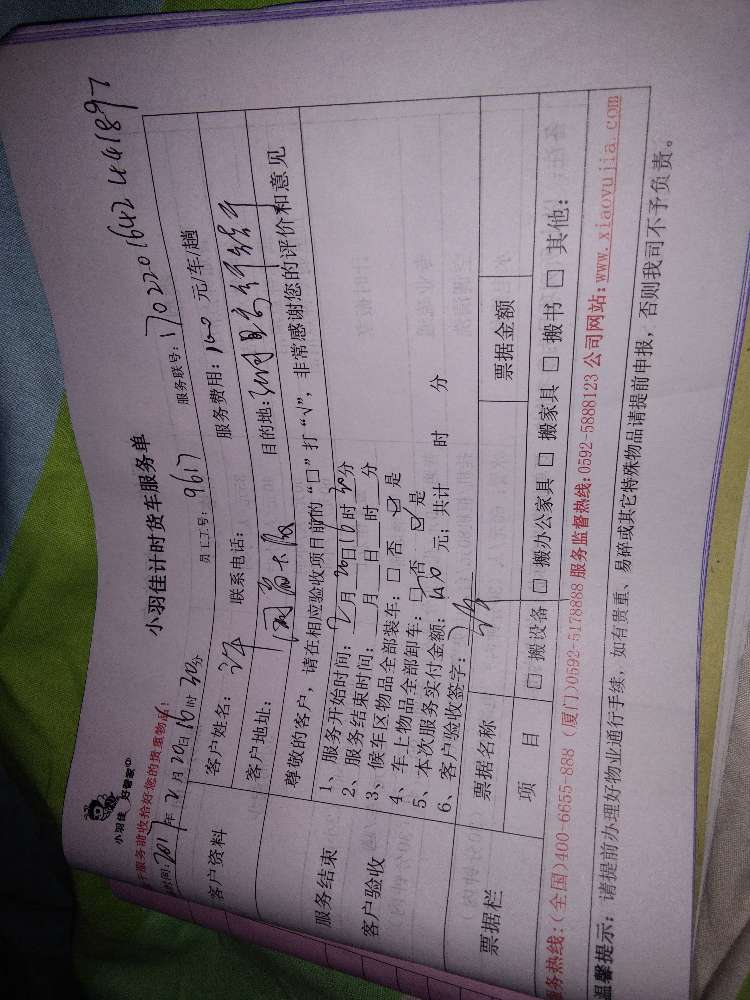 小羽佳 好管家
小羽佳计时货车服务单
服务联号：1702201642441897
服务前收拾好您的贵重物品！
时间：2017年2月20日16时30分 员工工号：9617 服务费用：160 元/车/趟
客户资料
客户姓名：许 联系电话： 目的地：
客户地址：
尊敬的客户，请在相应验收项目前的“□”打“√”，非常感谢您的评价和意见
服务结束
客户验收
1、服务开始时间：2月20日16时30分
2、服务结束时间： 月 日 时 分
3、候车区物品全部装车：□ 否 ☑ 是
4、车上物品全部卸车：□ 否 ☑ 是
5、本次服务实付金额： 元；共计 时 分
6、客户验收签字：
票据栏
票据名称 票据金额
项 目 □ 搬设备 □ 搬办公家具 □ 搬家具 □ 搬书 □ 其他：
服务热线：(全国)400-6655-888 (厦门)0592-5178888 服务监督热线：0592-5888123 公司网站：www.xiaoyujia.com
温馨提示：请提前办理好物业通行手续，如有贵重、易碎或其它特殊物品请提前申报，否则我司不予负责。